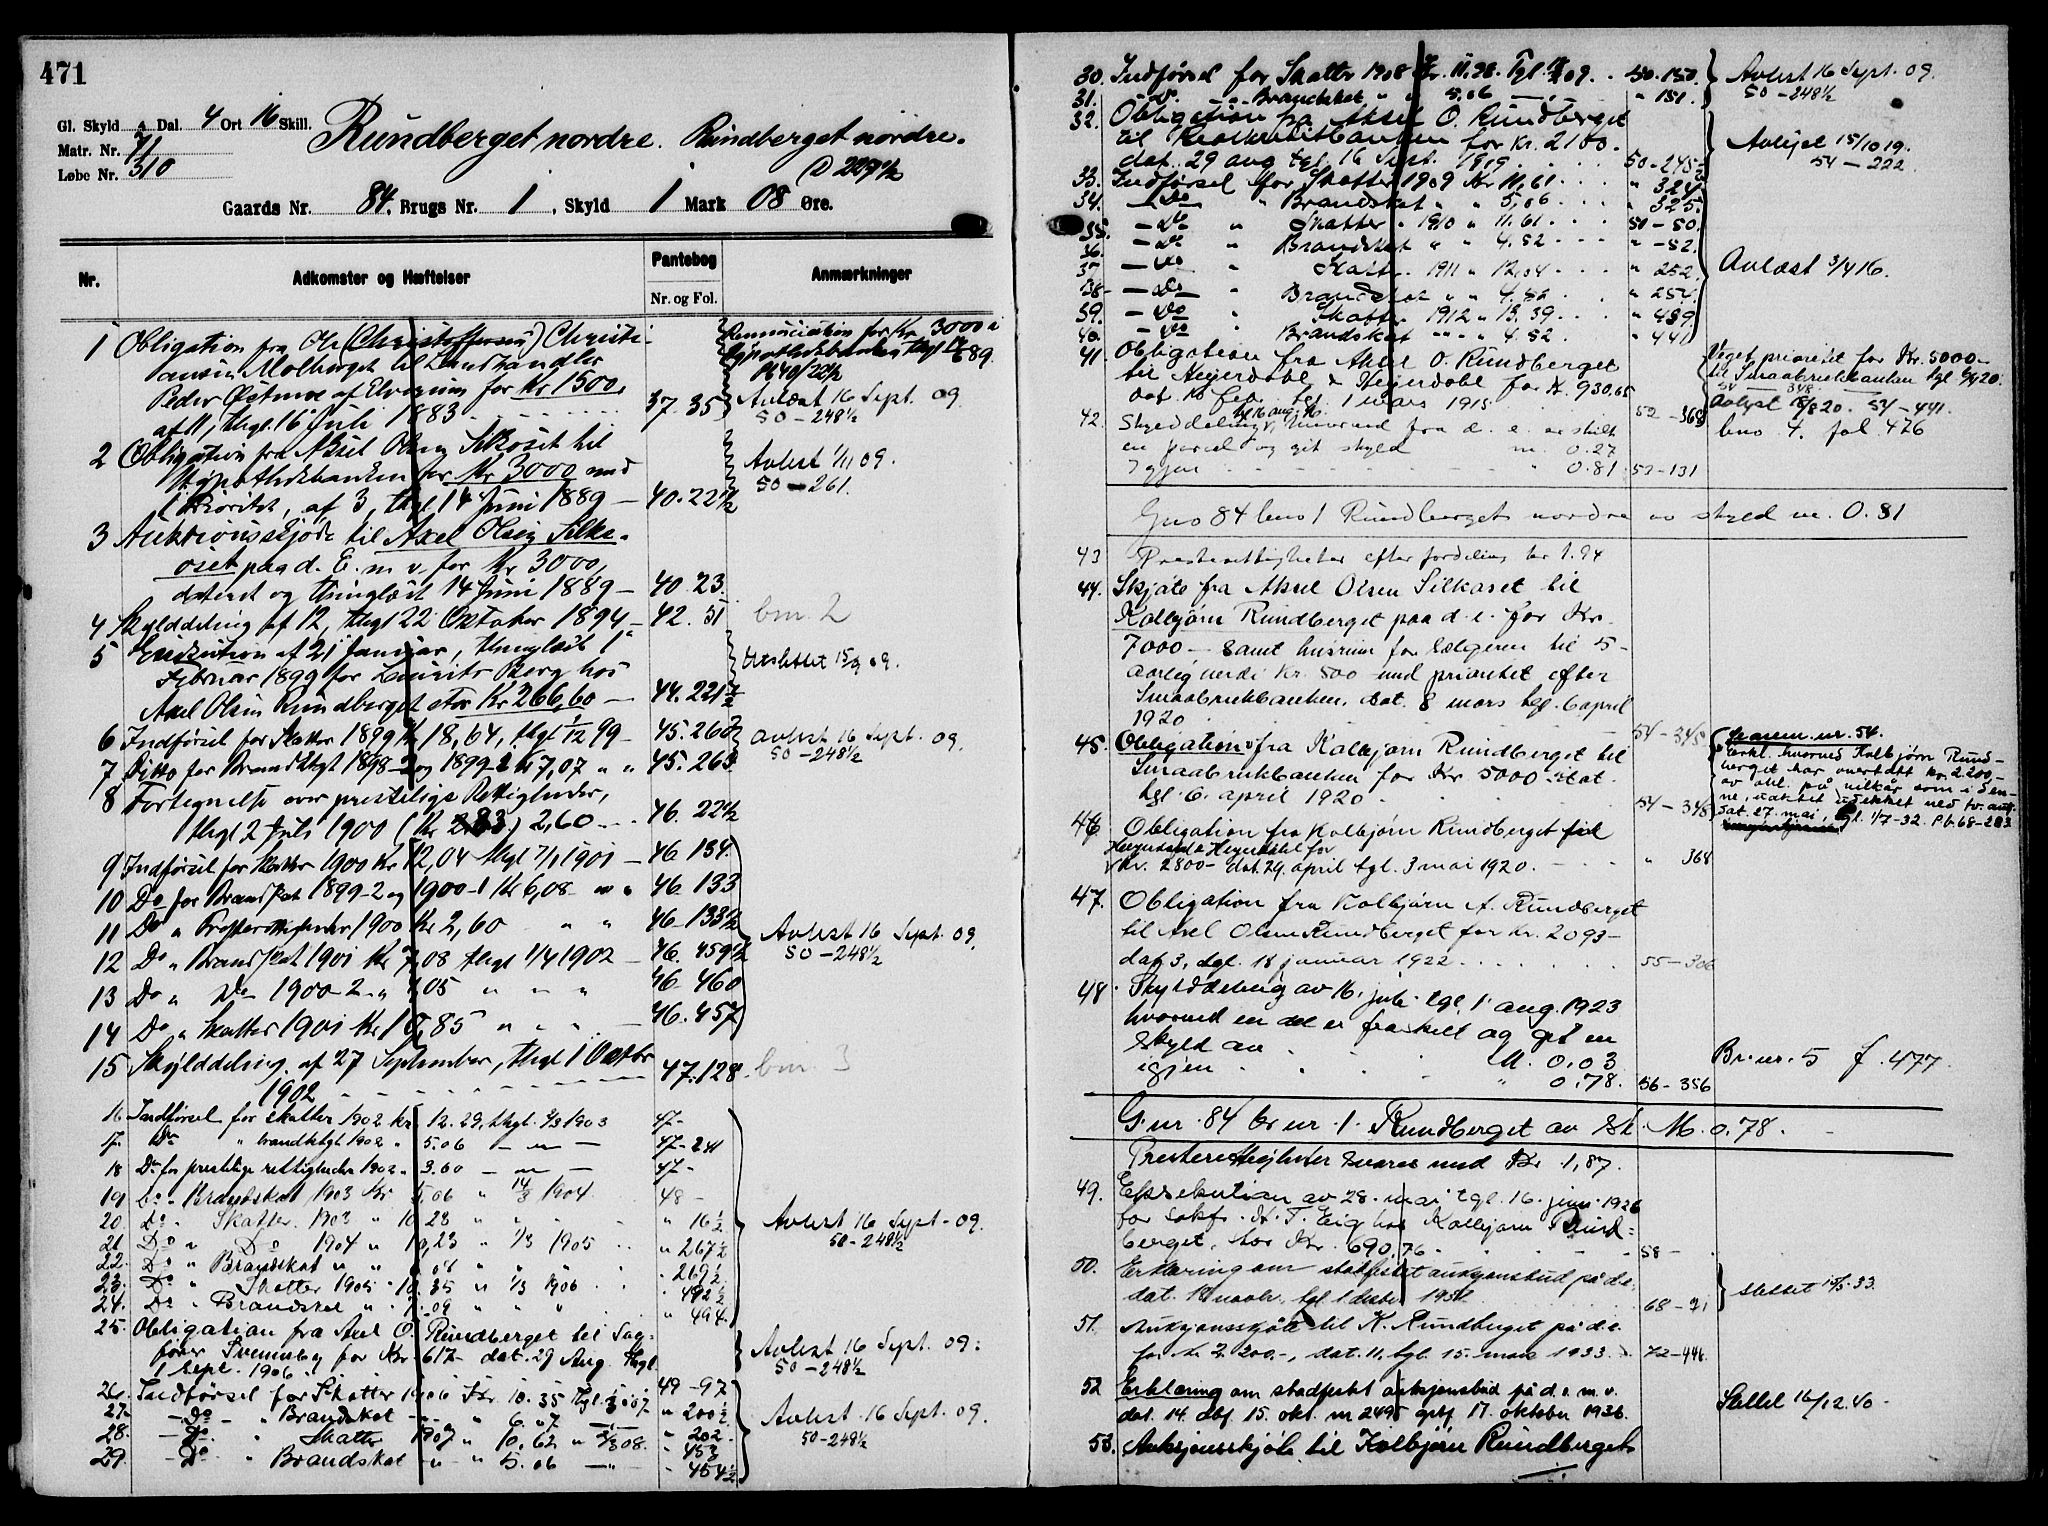 471
Gl. Skyld à Dal. 4 Ort 16 Skill.
Matr. Nr. 71
Løbe Nr. 310
Rundberget nordre. Rundberget nordre.
D 227½
Gaards Nr. 84. Brugs Nr. 1, Skyld 1 Mark 08 Øre.
Nr. Adkomster og Hæftelser Pantebog Anmærkninger
Nr. og Fol.
1 Obligation fra Ole (Christoffersen) Christi-
ansen Molberget til Landhandler
Peder Østmoe af Elverum for Kr 1500,
af 11, thgl. 16 Juli 1883 37. 35
Renunciation for Kr. 3000 i
Avlæst 16 Sept. 09.
50-248½
2 Obligation fra Axel Olsen Silkoset til
Hypothekbanken for Kr 3000 med
1 Prioritet, af 3, thgl 14 Juni 1889 — 40. 22½
Avlest 1/11 09.
50-261.
3 Auktionsskjøde til Axel Olsen Silke-
oset paa d. E. m. v. for Kr 3000,
dateret og thinglæst 14 Juni 1889 — 40. 23.
4 Skylddeling af 12, thgl 22 Oktober 1894 — 42. 51 bnr. 2
5 Exekution af 21 Januar, thinglæst 1
Februar 1899 for Laurits Berg hos
Axel Olsen Rundberget stor Kr 266,60 — 44. 221½
Utslettet 15/9 09.
6 Indførsel for Skatter 1899 Kr 18,64, thgl 1/12 99 — 45. 260½
7 Ditto for Brandktgt 1898-2 og 1899-1 Kr 7,07 " " 45. 263
Avlest 16 Sept. 09.
50-248½
8 Fortegnelse over prestelige Rettigheder,
thgl 2 Juli 1900 (Kr 2,83) 2,60 46. 22½
9 Indførsel for Skatter 1900 Kr 12,04 thgl 7/1 1901 — 46. 134.
10 Do for Brandskat 1899-2 og 1900-1 Kr 6,08 — " " 46. 133
11 Do " Presterettigheder 1900 Kr 2,60 " " 46. 133½
12 Do " Brandskat 1901 Kr 7,08 thgl 1/4 1902 — 46. 459½
13 Do " Do 1900-2 " 7,05 " " " 46. 460
14 Do " Skatter 1901 Kr 18,85 " " " 46. 457
Avlest 16 Sept. 09.
50-248½
15 Skylddeling af 27 September, thgl 1 Oktbr
1902 47. 128. bnr. 3
16. Indførsel for skatter 1902 kr. 12.29, thgl. 2/3 1903 47-
17. Do " brandktgt 1902 " 5.06 — " — 47-241
18 Do for prestelige rettigheder 1902 " 3.60 — " — 47-
19 Do " Brandskat 1903 Kr 5,06 " 14/3 1904. 48-
20. Do " Skatter. 1903 " 10 23 " " " 16½
21 Do " Do 1904 " 10,23 " 1/3 1905 " 267½
22. Do " Brandskat " " " " " 269½
23. Do " Skatter 1905 " 10 35 " 1/3 1906 " 492½
24. Do " Brandskat " " 09 " " " 494.
Avlest 16 Sept. 09.
50-248½
25. Obligation fra Axel O. Rundberget til Sag-
fører Svenneby for Kr. 617- dat. 29 Aug. thgl.
1 Sept. 1906 49-97
Avlest 16 Sept. 09.
50-248½
26. Indførsel for Skatter 1906 Kr. 10.35 Thgl. 07. " 200½
27. — Do — " Brandskat — " 6.07 " 202.
28. — Do " Skatter 1907 " 10,62 " 08. " 453
29. Do " Brandskat " " 5.06 — " — " 454½
Avlest 16 Sept. 09.
50-248½
30. Indførsel for Skatter 1908 Kr. 11.98. Tgl. 09. 50. 150.
31. Do. Brandskat " " 5.06 — " — " 151.
Avlest 16 Sept. 09.
50-248½
32. Obligation fra Aksel O. Rundberget
til Realkreditbanken for Kr. 2100.
dat. 29 aug tgl 16 Sept. 1919 50-245½
Avlest 15/10 19.
54-222.
33. Indførsel for Skatter 1909 Kr 11.61 " 324½
34. — Do " Brandskat " " 5,06 " 325.
35. — Do " Skatter " 1910 " 11.61 50-80.
36. — Do " Brandskat " " 4.52 " -82.
37 — Do " Skatt. 1911 " 12.04 " 252.
38 — Do " Brandskat " " 4.52 " 254.
39. — Do " Skatter 1912 " 13.39 " 439.
40. — Do " Brandskat " " " 4.52 " 441
Avlæst 3/4 16.
41 Obligation fra Aksel O. Rundberget
til Heyerdahl & Heyerdahl for Kr. 930,65
dat. 10 febr. tgl. 1 mars 1915 52-368
Veget prioritet for Kr. 5000-
til Smaabrukbanken tgl 6/4 20.
54-348
Avlyst 20. 54-441.
42. Skylddeling tgl 16 aug. 16. hvorved fra d. e. er skilt
en parcel og git skyld m. 0.27
Igjen " 0.81. 53-131
bno 4. fol 476
Gno 84 bno 1 Rundberget nordre av skyld m. 0.81
43 Presterettigheter efter fordeling kr 1.94
44. Skjøte fra Aksel Olsen Silkaset til
Kolbjørn Rundberget paa d. e. for Kr.
7000 — samt husrum for sælgeren til 5-
aarlig verdi Kr. 500 med prioritet efter
Smaabrukbanken. dat. 8 mars tgl. 6 april
1920 54-345
45. Obligation fra Kolbjørn Rundberget til
Smaabrukbanken for Kr. 5000 dat.
tgl. 6. april 1920 54-348
Se anm. nr. 54.
erkl. hvorved Kolbjørn Rund-
berget har overtatt kr. 2.200,-
av obl. på vilkår som i den-
ne, utstedt i sikket ved tv. auk.
dat. 27. mai, tgl. 1/7-32. Pb. 68-283
46 Obligation fra Kolbjørn Rundberget til
Heyerdahl & Heyerdahl for
kr. 2800- dat. 29 april tgl. 3 mai 1920. " 368
47. Obligation fra Kolbjørn A. Rundberget
til Axel Olsen Rundberget for Kr. 2093-
dat 3, tgl. 18 januar 1922 55-306
48. Skylddeling av 16. juli tgl. 1 aug. 1923
hvorved en del er fraskilt og git en
skyld av M. 0.03
igjen " 0.78. 56-356
Br. nr. 5 f. 477.
G. nr. 84 br nr. 1. Rundberget av sk. M. 0.78.
Presterettigheter svares med Kr 1,87.
49. Eksekution av 28. mai tgl. 16. juni 1926
for sakf. H. T. Eig hos Kolbjørn Rund-
berget, stor Kr. 690,76. 58-
50. Erklæring om stadfestet auksjonsbud på d.e.
dat. 18 novbr. tgl 1 desbr 1932. 68-71
slettet 15/5.33.
51. Auksjonsskjøte til K. Rundberget på d.e.
for kr 2200.-, dat. 11, tgl. 15. mars 1933. 72-446
52 Erklæring om stadfestet auksjonsbud på d. e. m. v.
dat. 14. dbf. 15. okt. nr 2495 gebf 17. oktober 1936.
Slettet 16/12.40.
53. Auksjonsskjøte til Kolbjørn Rundberget